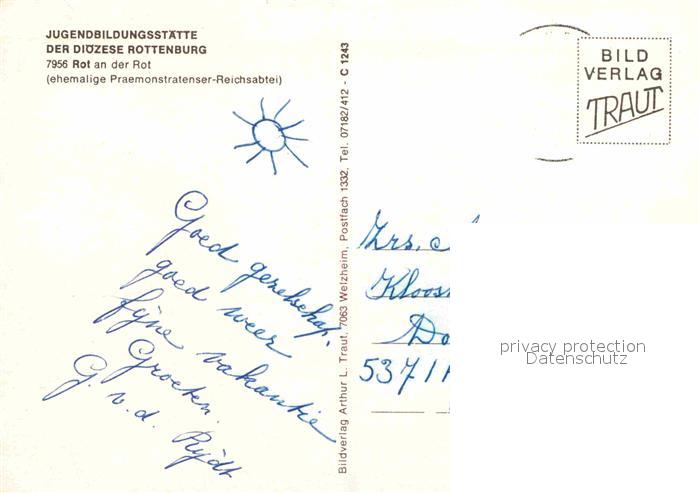 JUGENDBILDUNGSSTÄTTE
DER DIÖZESE ROTTENBURG
7956 Rot an der Rot
(ehemalige Praemonstratenser-Reichsabtei)
Goed gezelschap,
goed weer
fijne vakantie
Groeten.
G. v. d. Rijdt
Bildverlag Arthur L. Traut, 7063 Welzheim, Postfach 1332, Tel. 07182/412 - C 1243
BILD
VERLAG
TRAUT
Zrs. c
Kloos
Do
5371
privacy protection
Datenschutz